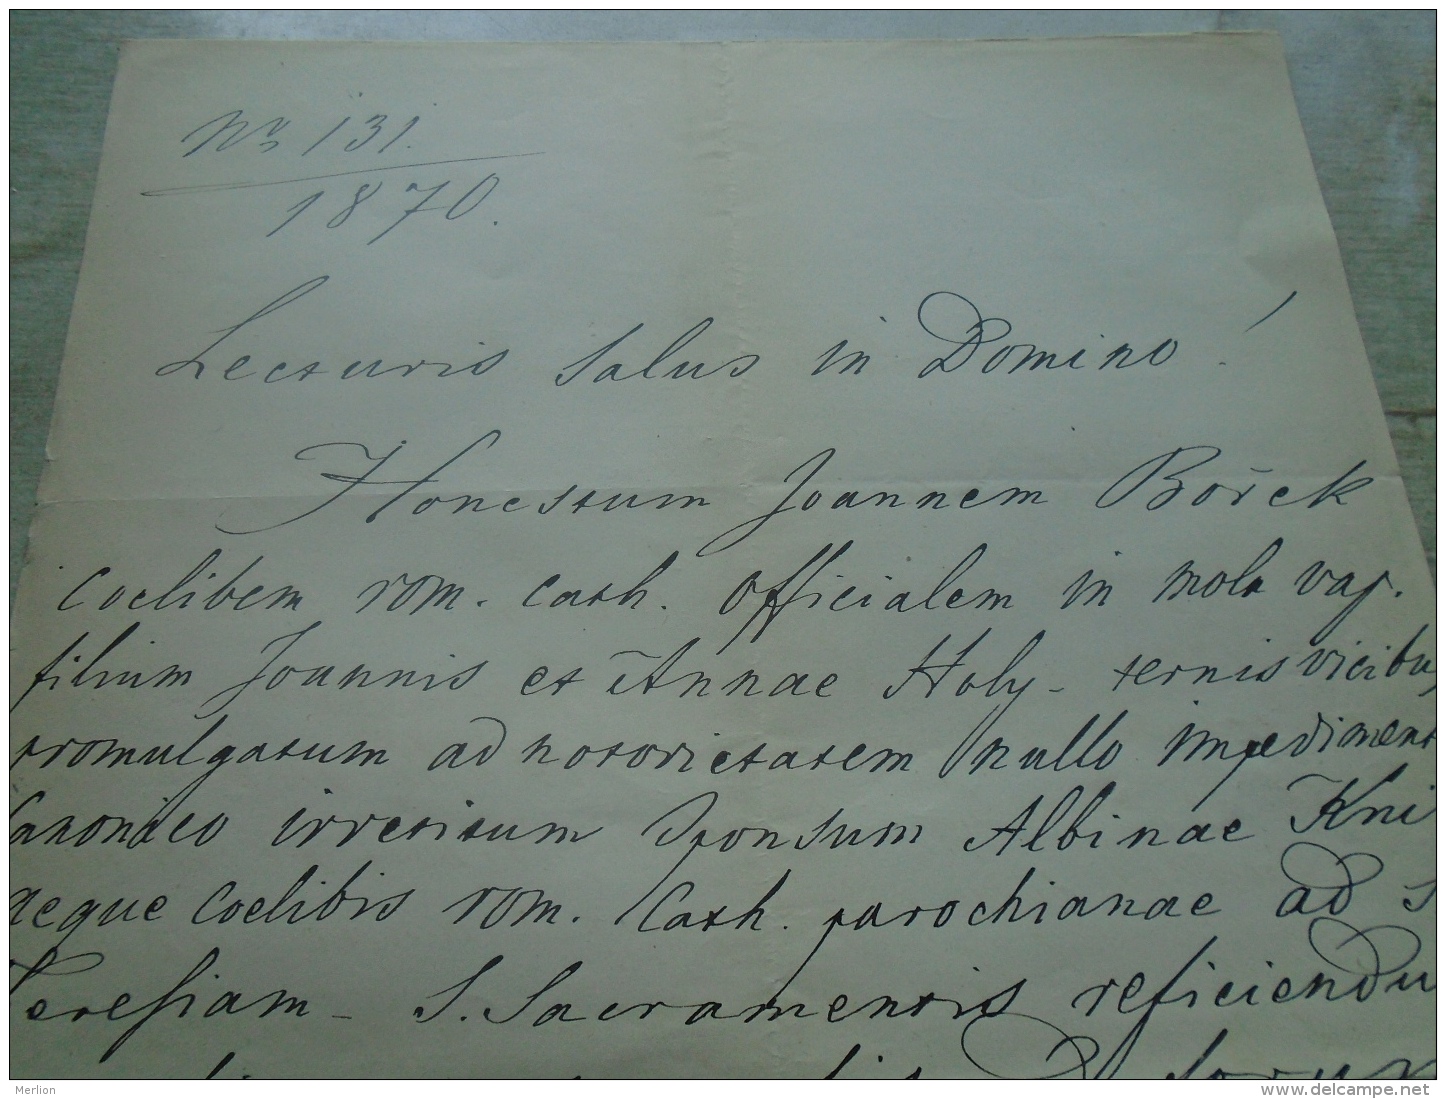 Nro 131.
1870.
Lecturis Salus in Domino!
Honestum Joannem Bořek
Coelibem rom. Cath. Officialem in mola vap.
filium Joannis et Annae Holy - ternis vicibus
promulgatum ad notorietatem nullo impediment
Canonico irretitum Sponsum Albinae Kni
aeque Coelibis rom. Cath. parochianae ad S
Teresiam - S. Sacramentis reficiendu
Merlion
www.delcampe.net